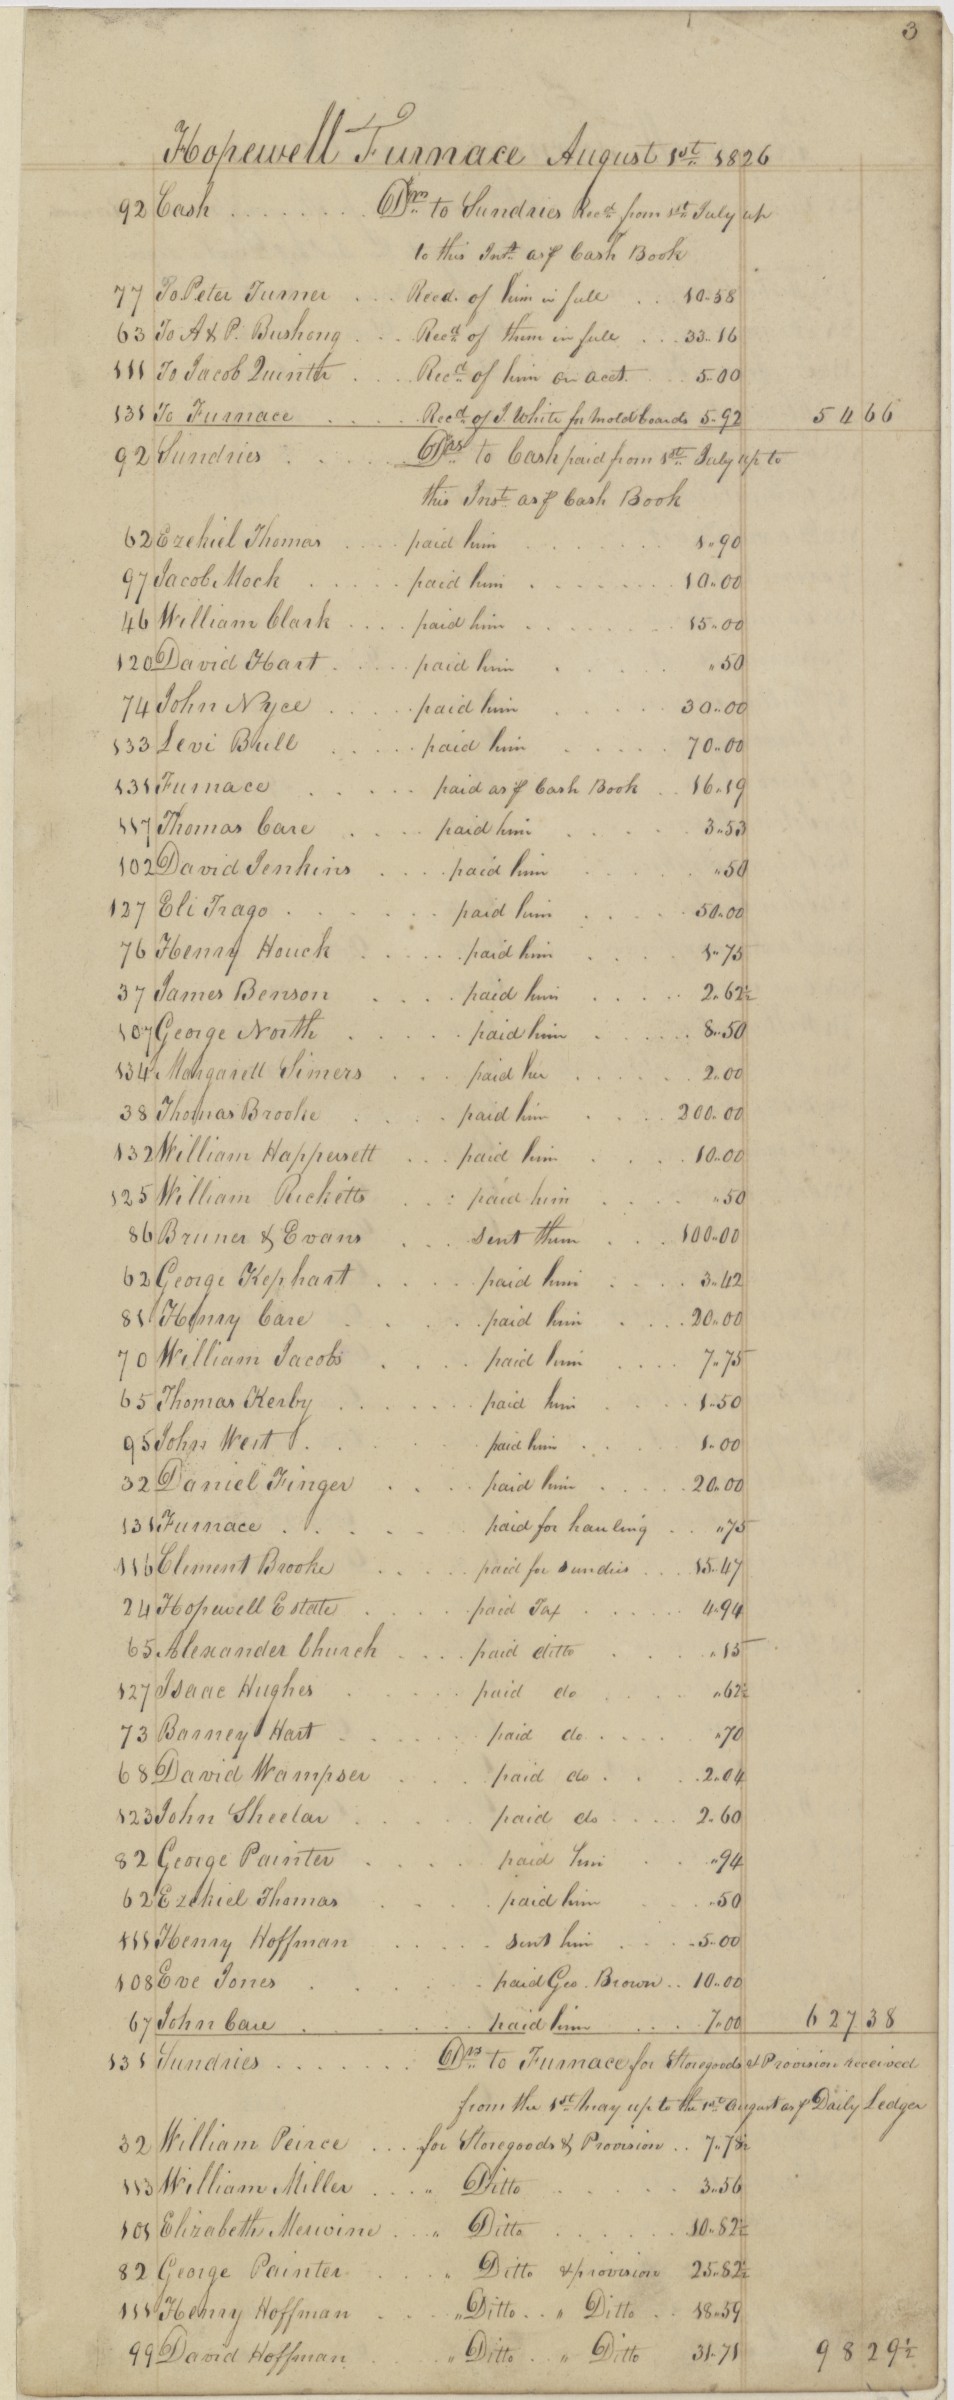 3
Hopewell Furnace August 1st 1826
92 Cash ........ Drs to Sundries Recd from 1st July up
to this Inst as ⅌ Cash Book
77 To Peter Turner ... Recd. of him in full .. 10..58
63 To A & P. Bushong ... Recd of them in full ... 33..16
111 To Jacob Quinth .... Recd of him on acct. ... 5..00
131 To Furnace ..... Recd of J. White for moldboards 5..92 54 66
92 Sundries ..... Drs to Cash paid from 1st July up to
this Inst as ⅌ Cash Book
62 Ezekiel Thomas .... paid him ....... 1..90
97 Jacob Mock ..... paid him ....... 10..00
46 William Clark .... paid him ....... 15..00
120 David Hart ..... paid him ..... " 50
74 John Nyce ..... paid him ..... 30..00
133 Levi Bull ..... paid him ..... 70..00
131 Furnace ..... paid as ⅌ Cash Book .. 16..19
117 Thomas Care .... paid him ..... 3..53
102 David Jenkins .... paid him ..... " 50
127 Eli Trago ...... paid him ..... 50..00
76 Henry Houck ..... paid him .... 1..75
37 James Benson .... paid him ..... 2..62½
107 George North ..... paid him ..... 8..50
134 Margarett Simers ... paid her ..... 2..00
38 Thomas Brooke .... paid him .... 200..00
132 William Happersett ... paid him .... 10..00
125 William Ricketts ... paid him .... " 50
86 Bruner & Evans ... sent them ... 100..00
62 George Kephart ..... paid him .... 3..42
81 Henry Care ..... paid him .... 20..00
70 William Jacobs .... paid him .... 7..75
65 Thomas Kerby ....... paid him .... 1..50
95 John West ..... paid him .... 1..00
32 Daniel Finger .... paid him ..... 20..00
131 Furnace ...... paid for hauling .. " 75
116 Clement Brooke ..... paid for sundries ... 15..47
24 Hopewell Estate .... paid Tax ...... 4..94
65 Alexander Church .... paid ditto .... " 15
127 Isaac Hughes ..... paid do .... " 62½
73 Barney Hart ...... paid do .... " 70
68 David Wampser .... paid do .... 2..04
123 John Sheelar ..... paid do .... 2..60
82 George Painter .... paid him .. " 94
62 Ezekiel Thomas .... paid him ... " 50
111 Henry Hoffman ..... sent him ... 5..00
108 Eve Jones .... paid Geo. Brown .. 10..00
67 John Care ...... paid him ... 7..00 627 38
131 Sundries ....... Drs to Furnace for Storegoods & Provision received
from the 1st May up to the 1st August as ⅌ Daily Ledger
32 William Peirce ... for Storegoods & Provision .. 7..78½
113 William Miller .... " Ditto ...... 3..56
101 Elizabeth Merwine .. " Ditto ...... 10..82½
82 George Painter .... " Ditto & provision 25..82½
111 Henry Hoffman .... " Ditto .. " Ditto .. 18..59
99 David Hoffman .... " Ditto .. " Ditto 31..71 98 29½